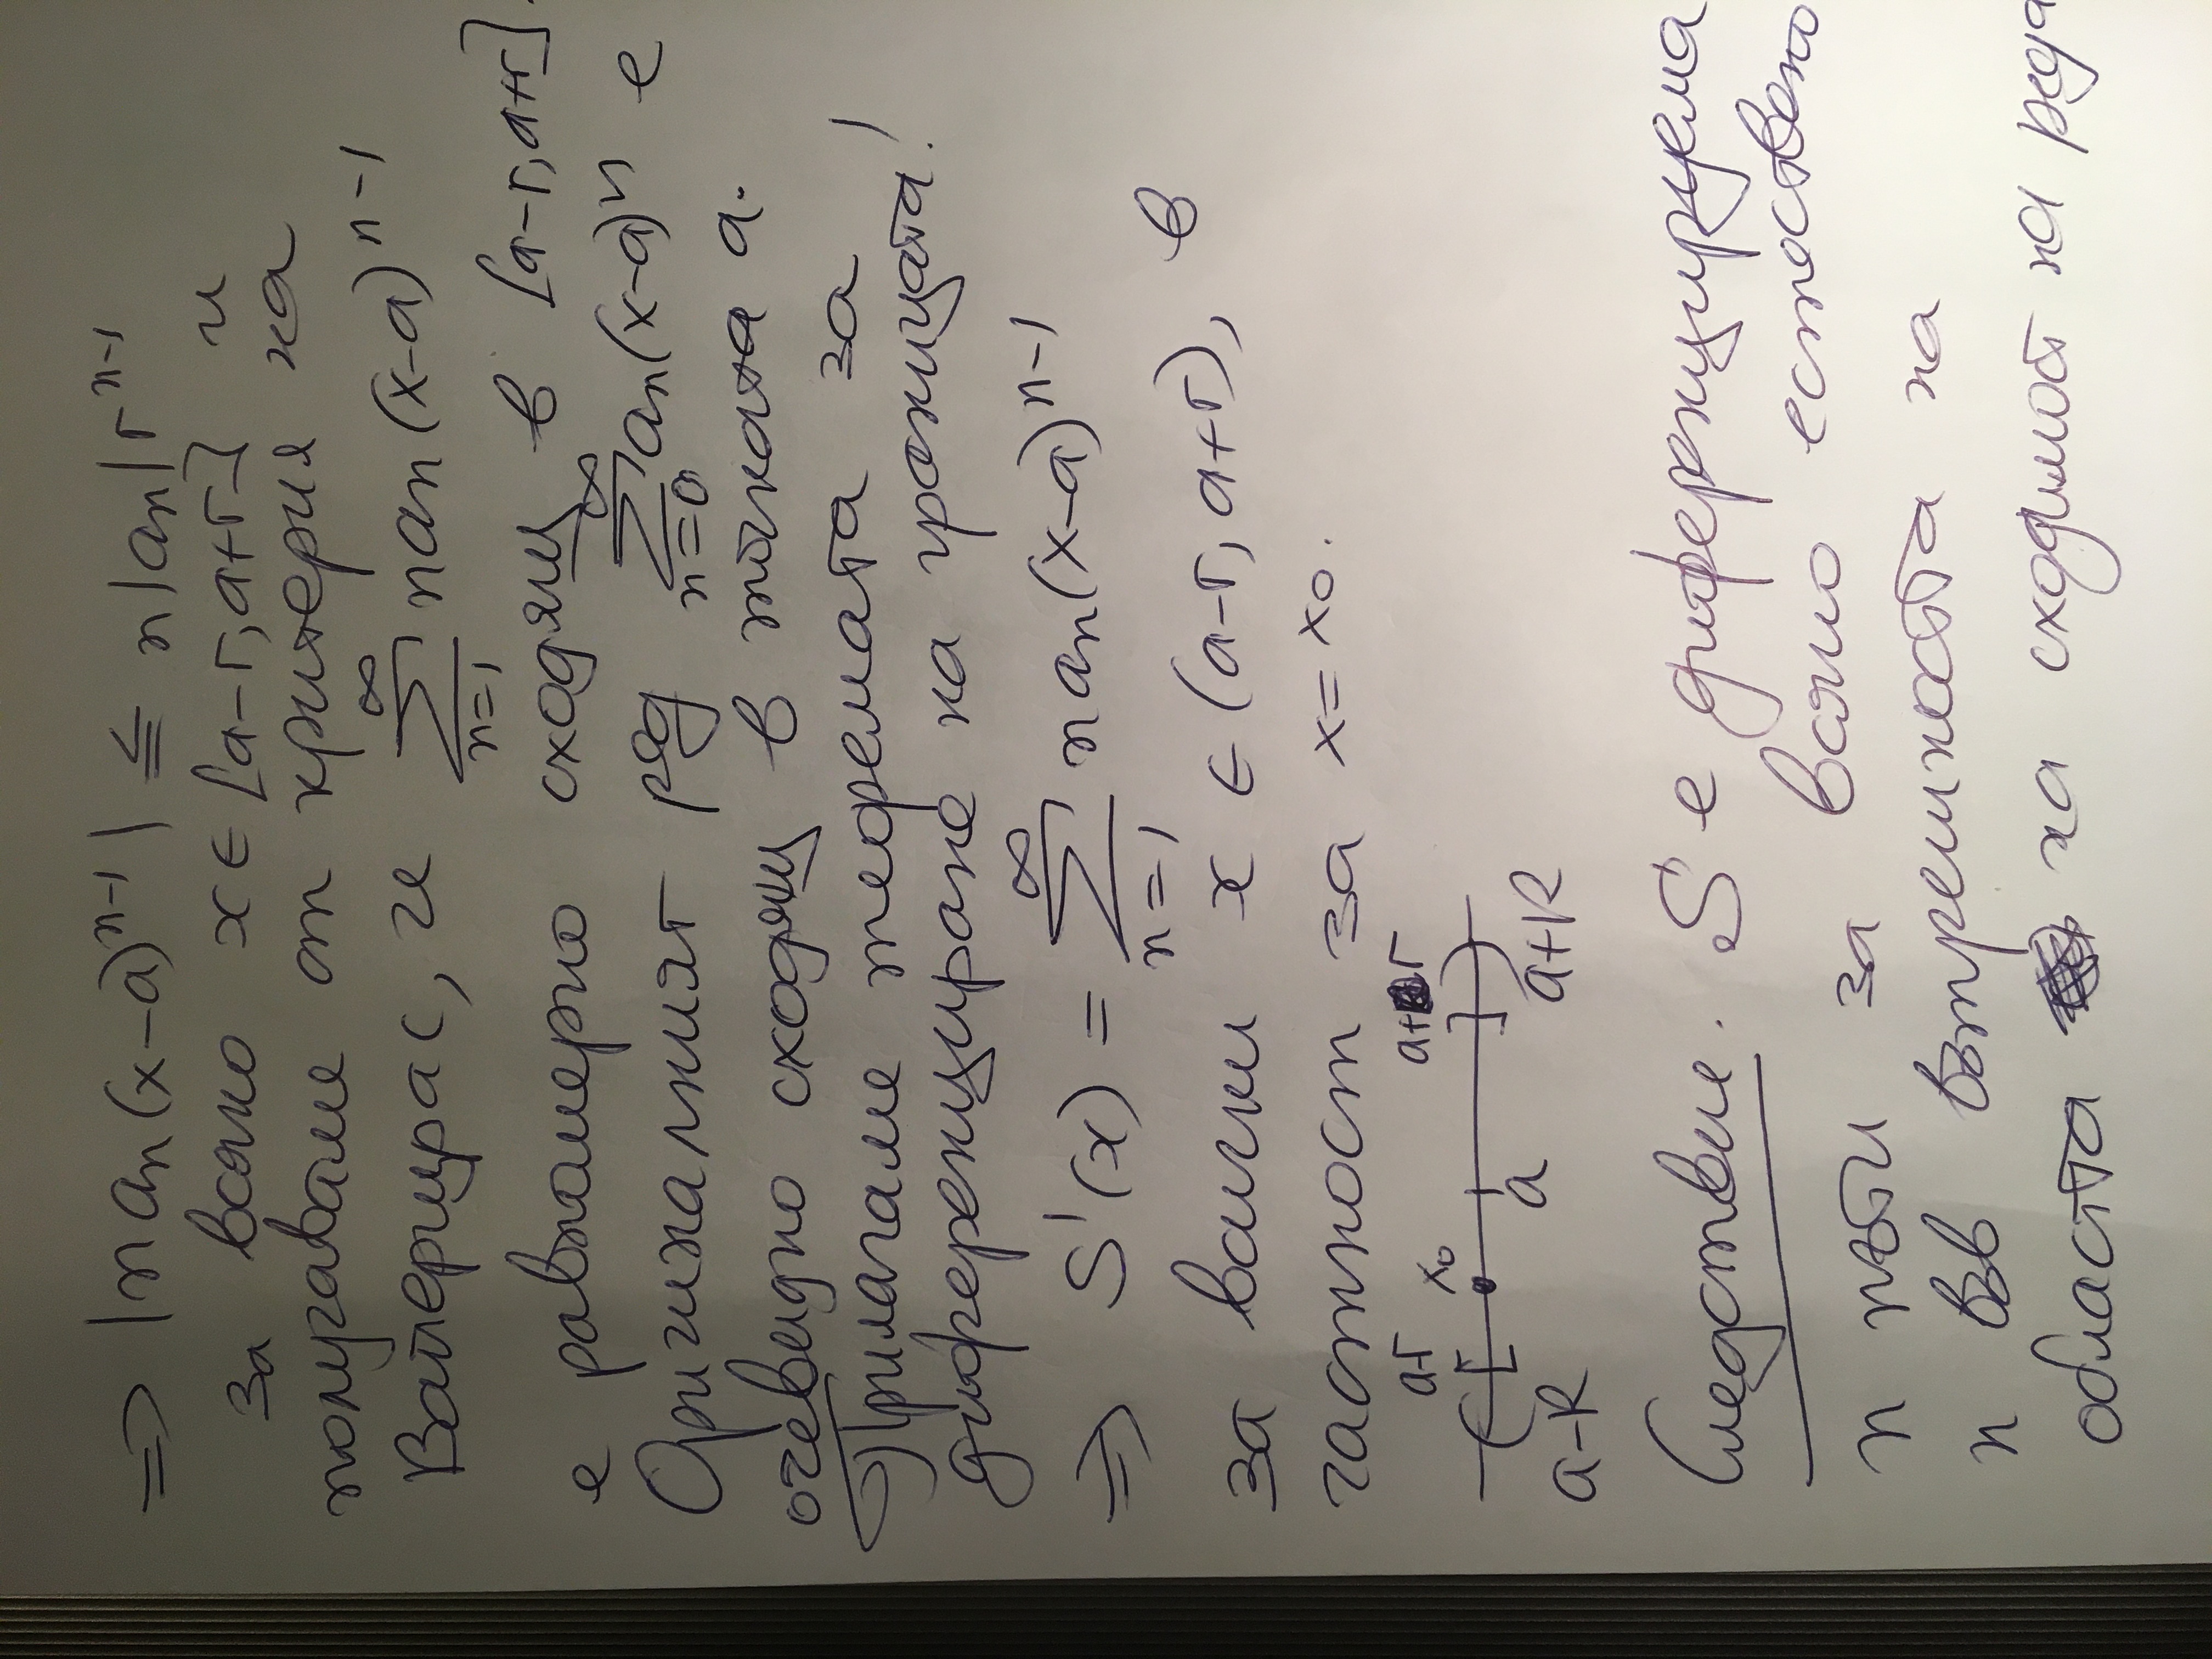 ⇒ |n aₙ(x-a)ⁿ⁻¹| ≦ n|aₙ|rⁿ⁻¹
за всяко x ∈ [a-r, a+r] и
получаваме от критерия на
Вайерщрас, че ∞∑n=1 naₙ(x-a)ⁿ⁻¹
е равномерно сходящ в [a-r, a+r].
Оригиналният ред ∞∑n=0 aₙ(x-a)ⁿ е
очевидно сходящ в точката a.
Прилагаме теоремата за
диференциране на границата!
⇒ S'(x) = ∞∑n=1 naₙ(x-a)ⁿ⁻¹
за всички x ∈ (a-r, a+r), в
частност за x = x₀.
a-r x₀ a+r
a
a-R a+R
Следствие. S е диференцируема
n пъти за всяко естествено
n във вътрешността на
областта на сходимост на реда